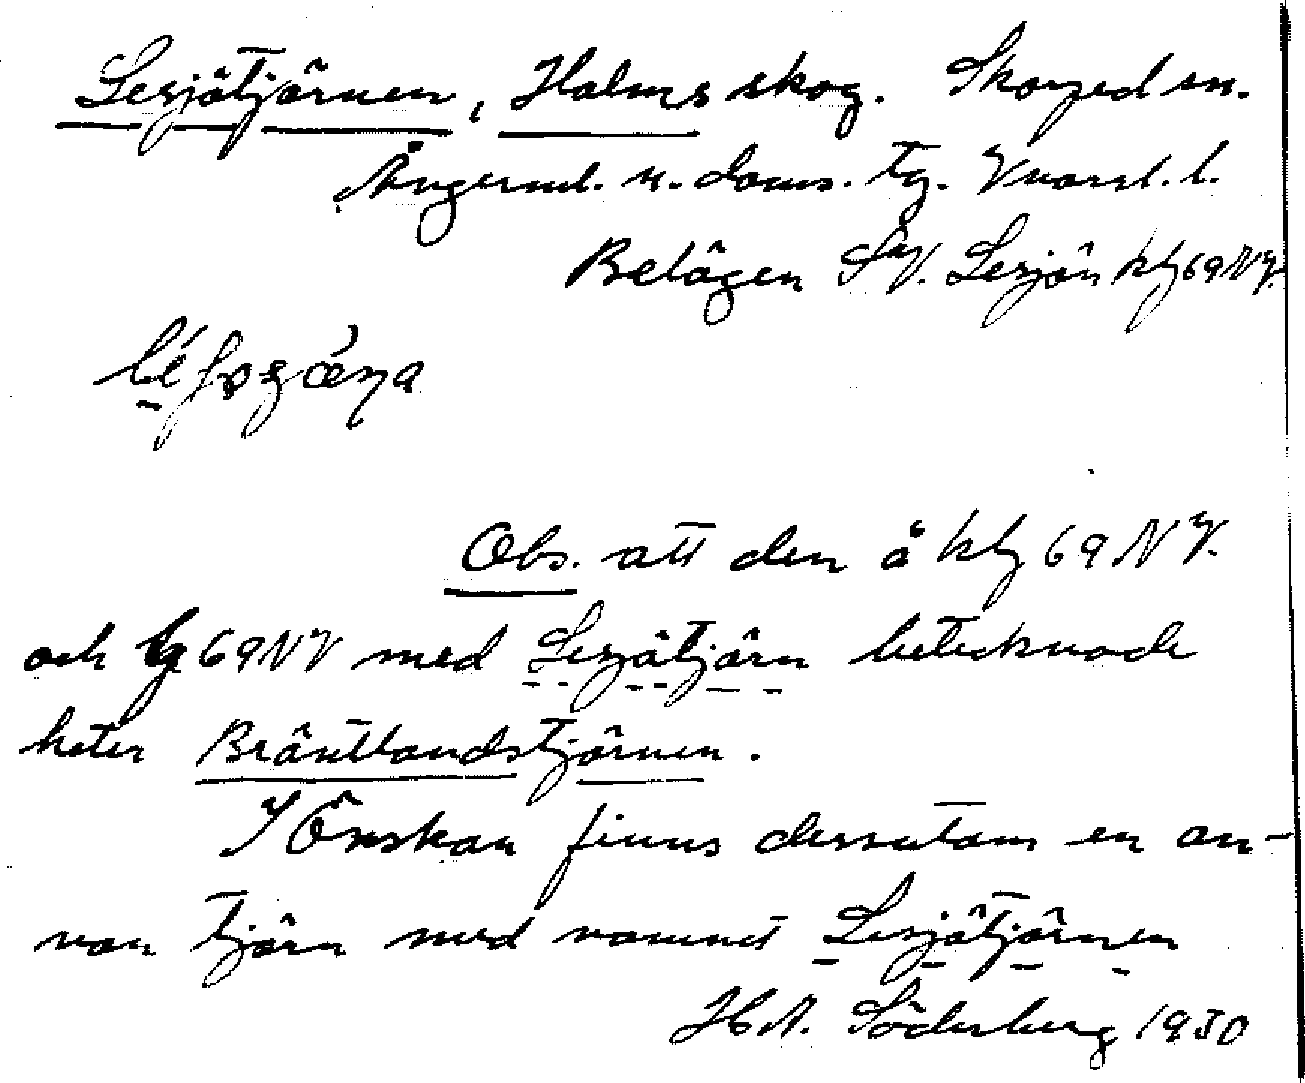 Lesjötjärnen, Holms skog. Skorped sn.
Ångerml. n. doms. tg. Vnorrl. l.
Belägen SV. Lesjön kbj 69 NV.
Obs. att den å kbj 69 NV.
och bg 69 NV med Lesjötjärn betecknade
heter Bräntlandstjärnen.
I Önskan finns dessutom en an-
nan tjärn med namnet Lesjötjärnen
H A. Söderberg 1930